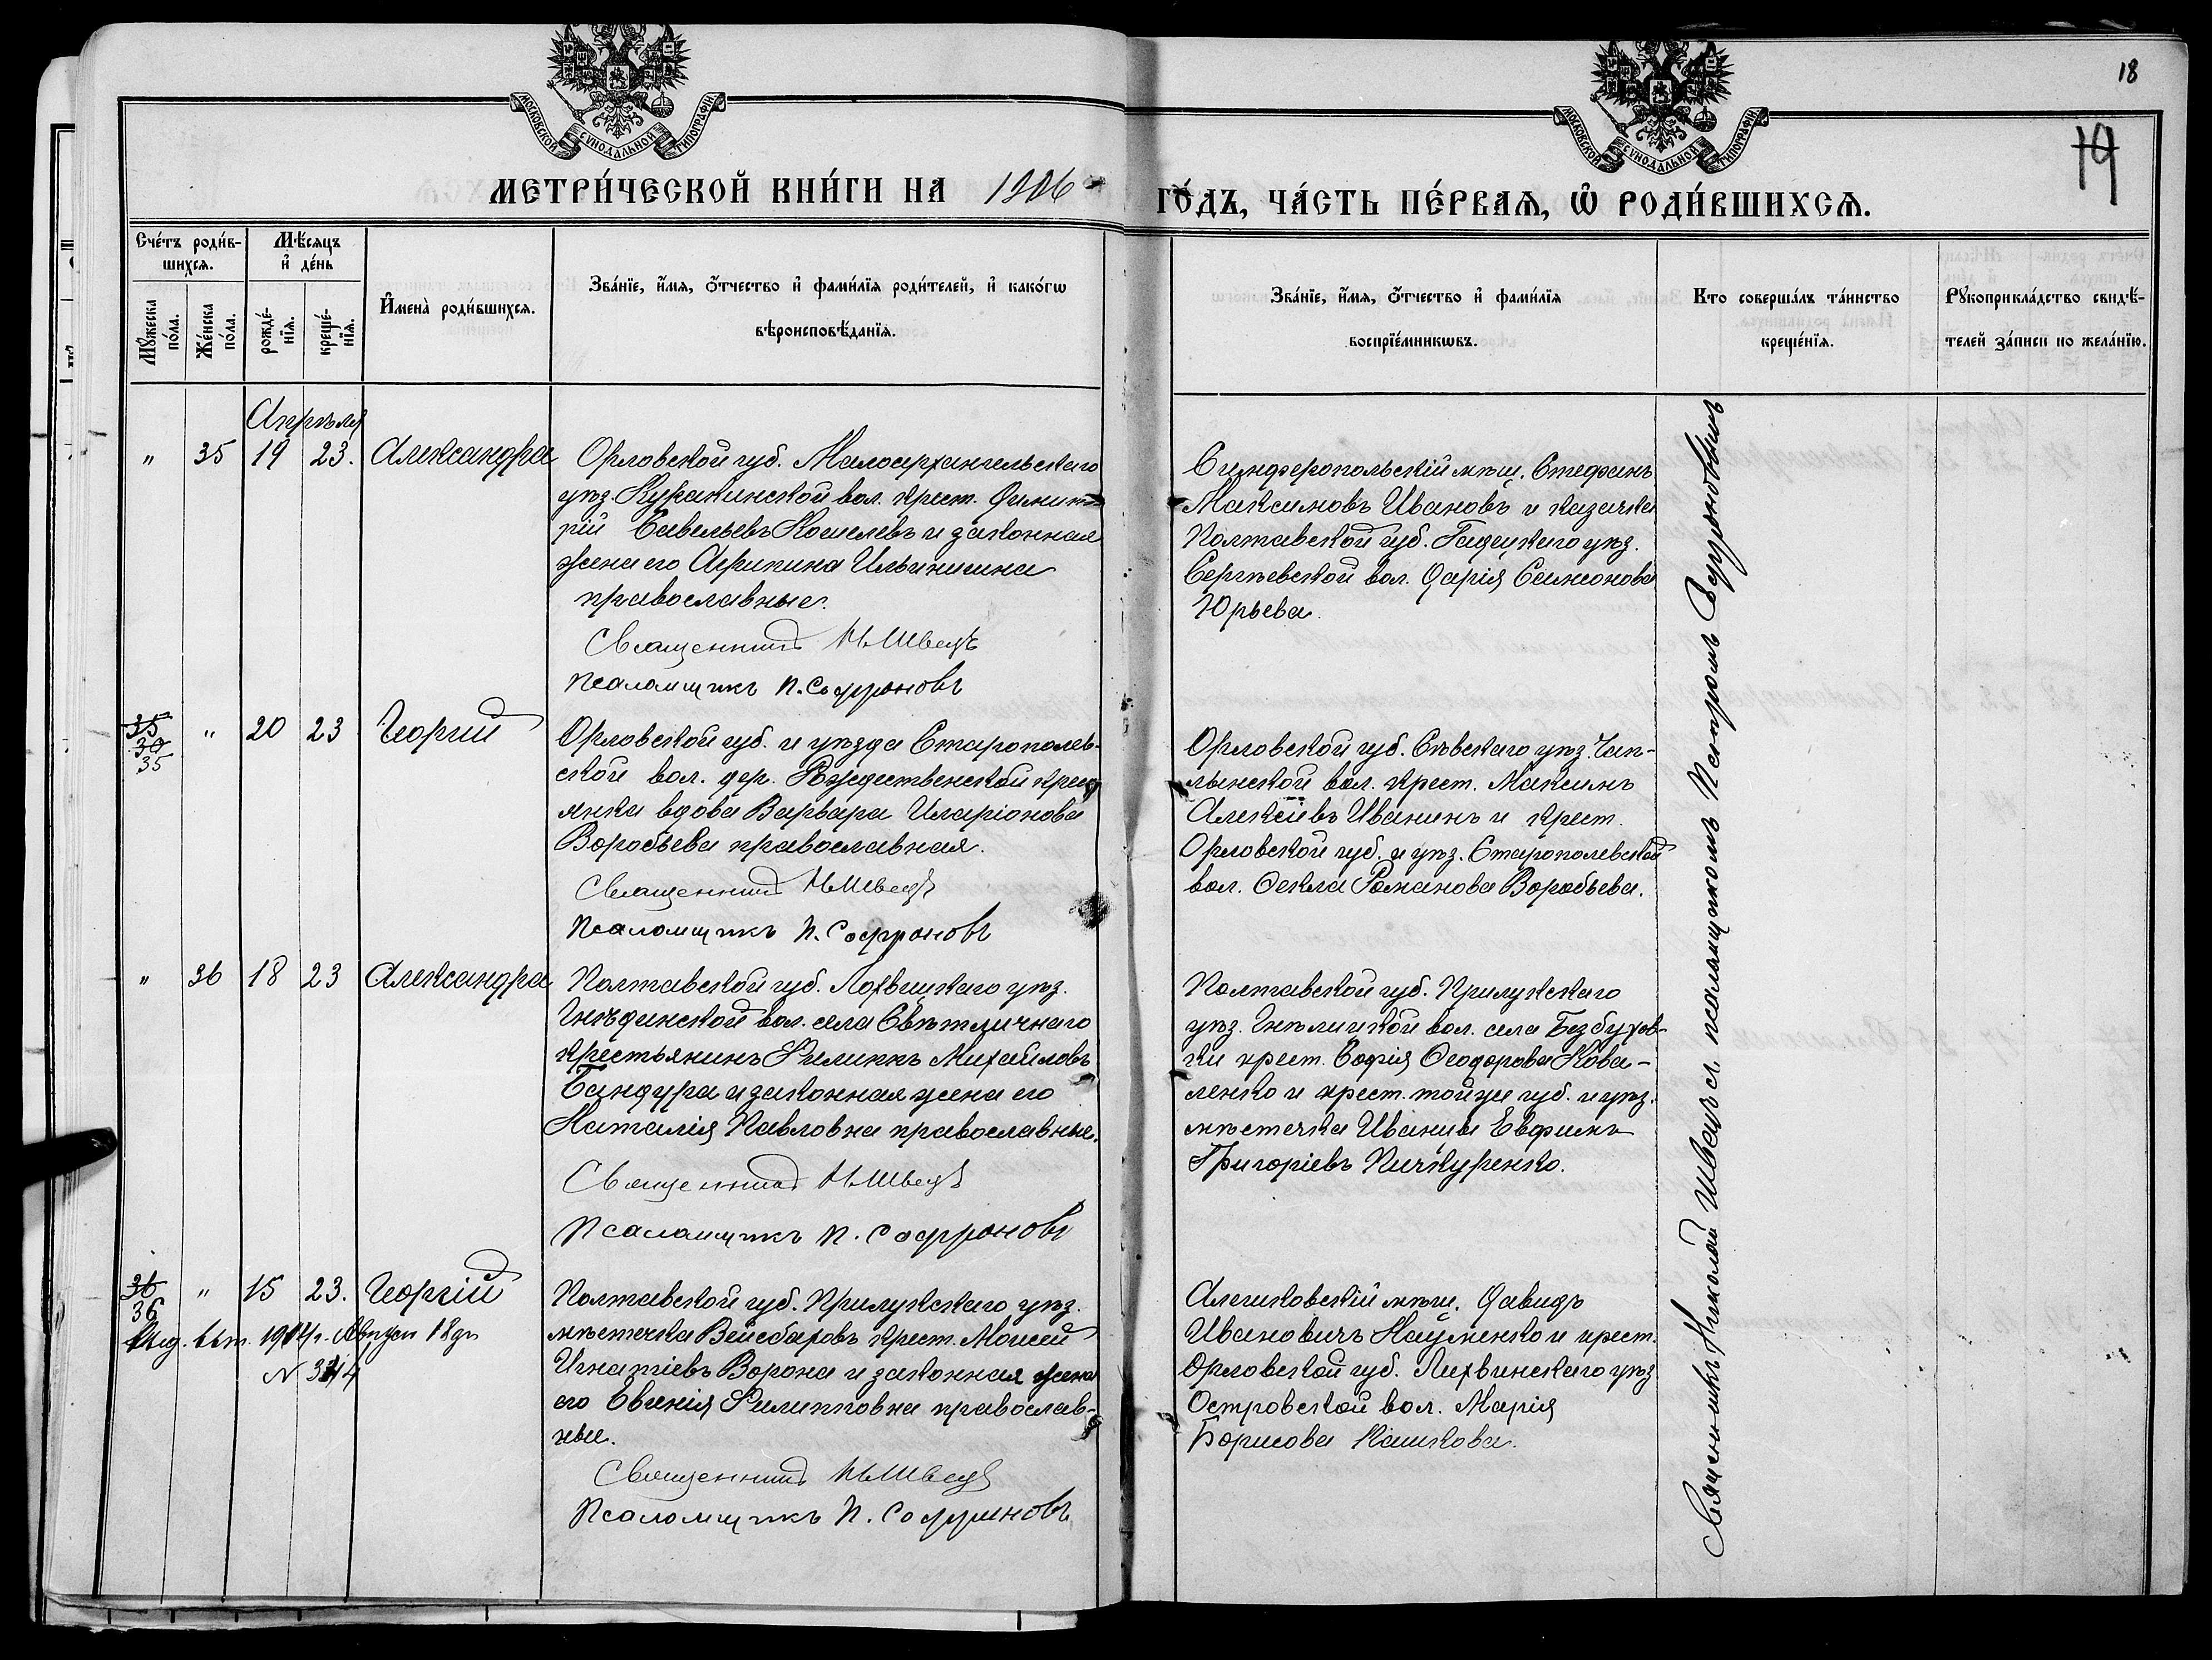 18
19
МОСКОВСКОЙ СѴНОДАЛЬНОЙ ТИПОГРАФІИ
МОСКОВСКОЙ СѴНОДАЛЬНОЙ ТИПОГРАФІИ
МЕТРИ́ЧЕСКОЙ КНИ́ГИ НА 1906
ГО́ДЪ, ЧА́СТЬ ПЕ́РВАѦ, Ѡ҆ РОДИ́ВШИХСѦ.
Сче́тъ роди́в-
шихсѧ.
Мꙋ́жеска по́ла.
Же́нска по́ла.
Мѣ́сяцъ
и҆ де́нь
рожде́-
нїѧ.
креще́-
нїѧ.
И҆мена̀ роди́вшихсѧ.
Зва́нїе, и҆́мѧ, ѻ҆́тчество и҆ фами́лїѧ роди́телей, и҆ како́гѡ
вѣроисповѣ́данїѧ.
Зва́нїе, и҆́мѧ, ѻ҆́тчество и҆ фами́лїѧ
воспрїе́мникѡвъ.
Кто соверша́лъ та́инство
креще́нїѧ.
Рꙋкоприкла́дство свидѣ́-
телей за́писи по жела́нїю.
Апрѣля
" 35 19 23. Александра
Орловской губ. Малоархангельскаго
уѣз. Куракинской вол. крест. Димит-
рій Савельевъ Кошелевъ и законная
жена его Агрипина Ильинишна
православные.
Священникъ Н. Швецъ
Псаломщикъ П. Софроновъ
Симферопольскій мѣщ. Стефанъ
Максимовъ Ивановъ и казачка
Полтавской губ. Гадецкаго уѣз.
Сергѣевской вол. Дарія Семионова
Юрьева.
35
30
35 " 20 23 Георгий
Орловской губ. и уѣзда Старополев-
ской вол. дер. Рождественской крест
янка вдова Варвара Иларіонова
Воробьева православная.
Священникъ Н. Швецъ
Псаломщикъ П. Софроновъ
Орловской губ. Сѣвскаго уѣз. Чап-
лынской вол. крест. Максимъ
Алексіевъ Иванинъ и крест.
Орловской губ. и уѣз. Старополевской
вол. Ѳекла Романова Воробьева.
" 36 18 23 Александра
Полтавской губ. Лохвицкаго уѣз.
Гнѣдинской вол. села Свѣтличнаго
крестьянинъ Филиппъ Михайловъ
Бандура и законная жена его
Наталія Павловна православные.
Священникъ Н. Швецъ
Псаломщикъ П. Софроновъ
Полтавской губ. Прилукскаго
уѣз. Гнѣлицкой вол. села Безбухов-
ки крест. Софія Ѳеодорова Кова-
ленко и крест. той же губ. и уѣз.
мѣстечка Иваницы Евфимъ
Григоріевъ Пичкуренко.
36
36 " 15 23. Георгій
Выд. вып. 1914 г. Августа 18 дн
N 3314
Полтавской губ. Прилукскаго уѣз.
мѣстечка Вейсбаховъ крест. Моисей
Игнатіевъ Ворона и законная жена
его Евгенія Филипповна православ-
ные.
Священникъ Н. Швецъ
Псаломщикъ П. Софроновъ
Алешковскій мѣщ. Давидъ
Ивановичъ Науменко и крест.
Орловской губ. Лихвинскаго уѣз
Островской вол. Марія
Борисова Кашкова.
Священникъ Николай Швецъ съ псаломщикомъ Петромъ Софроновымъ